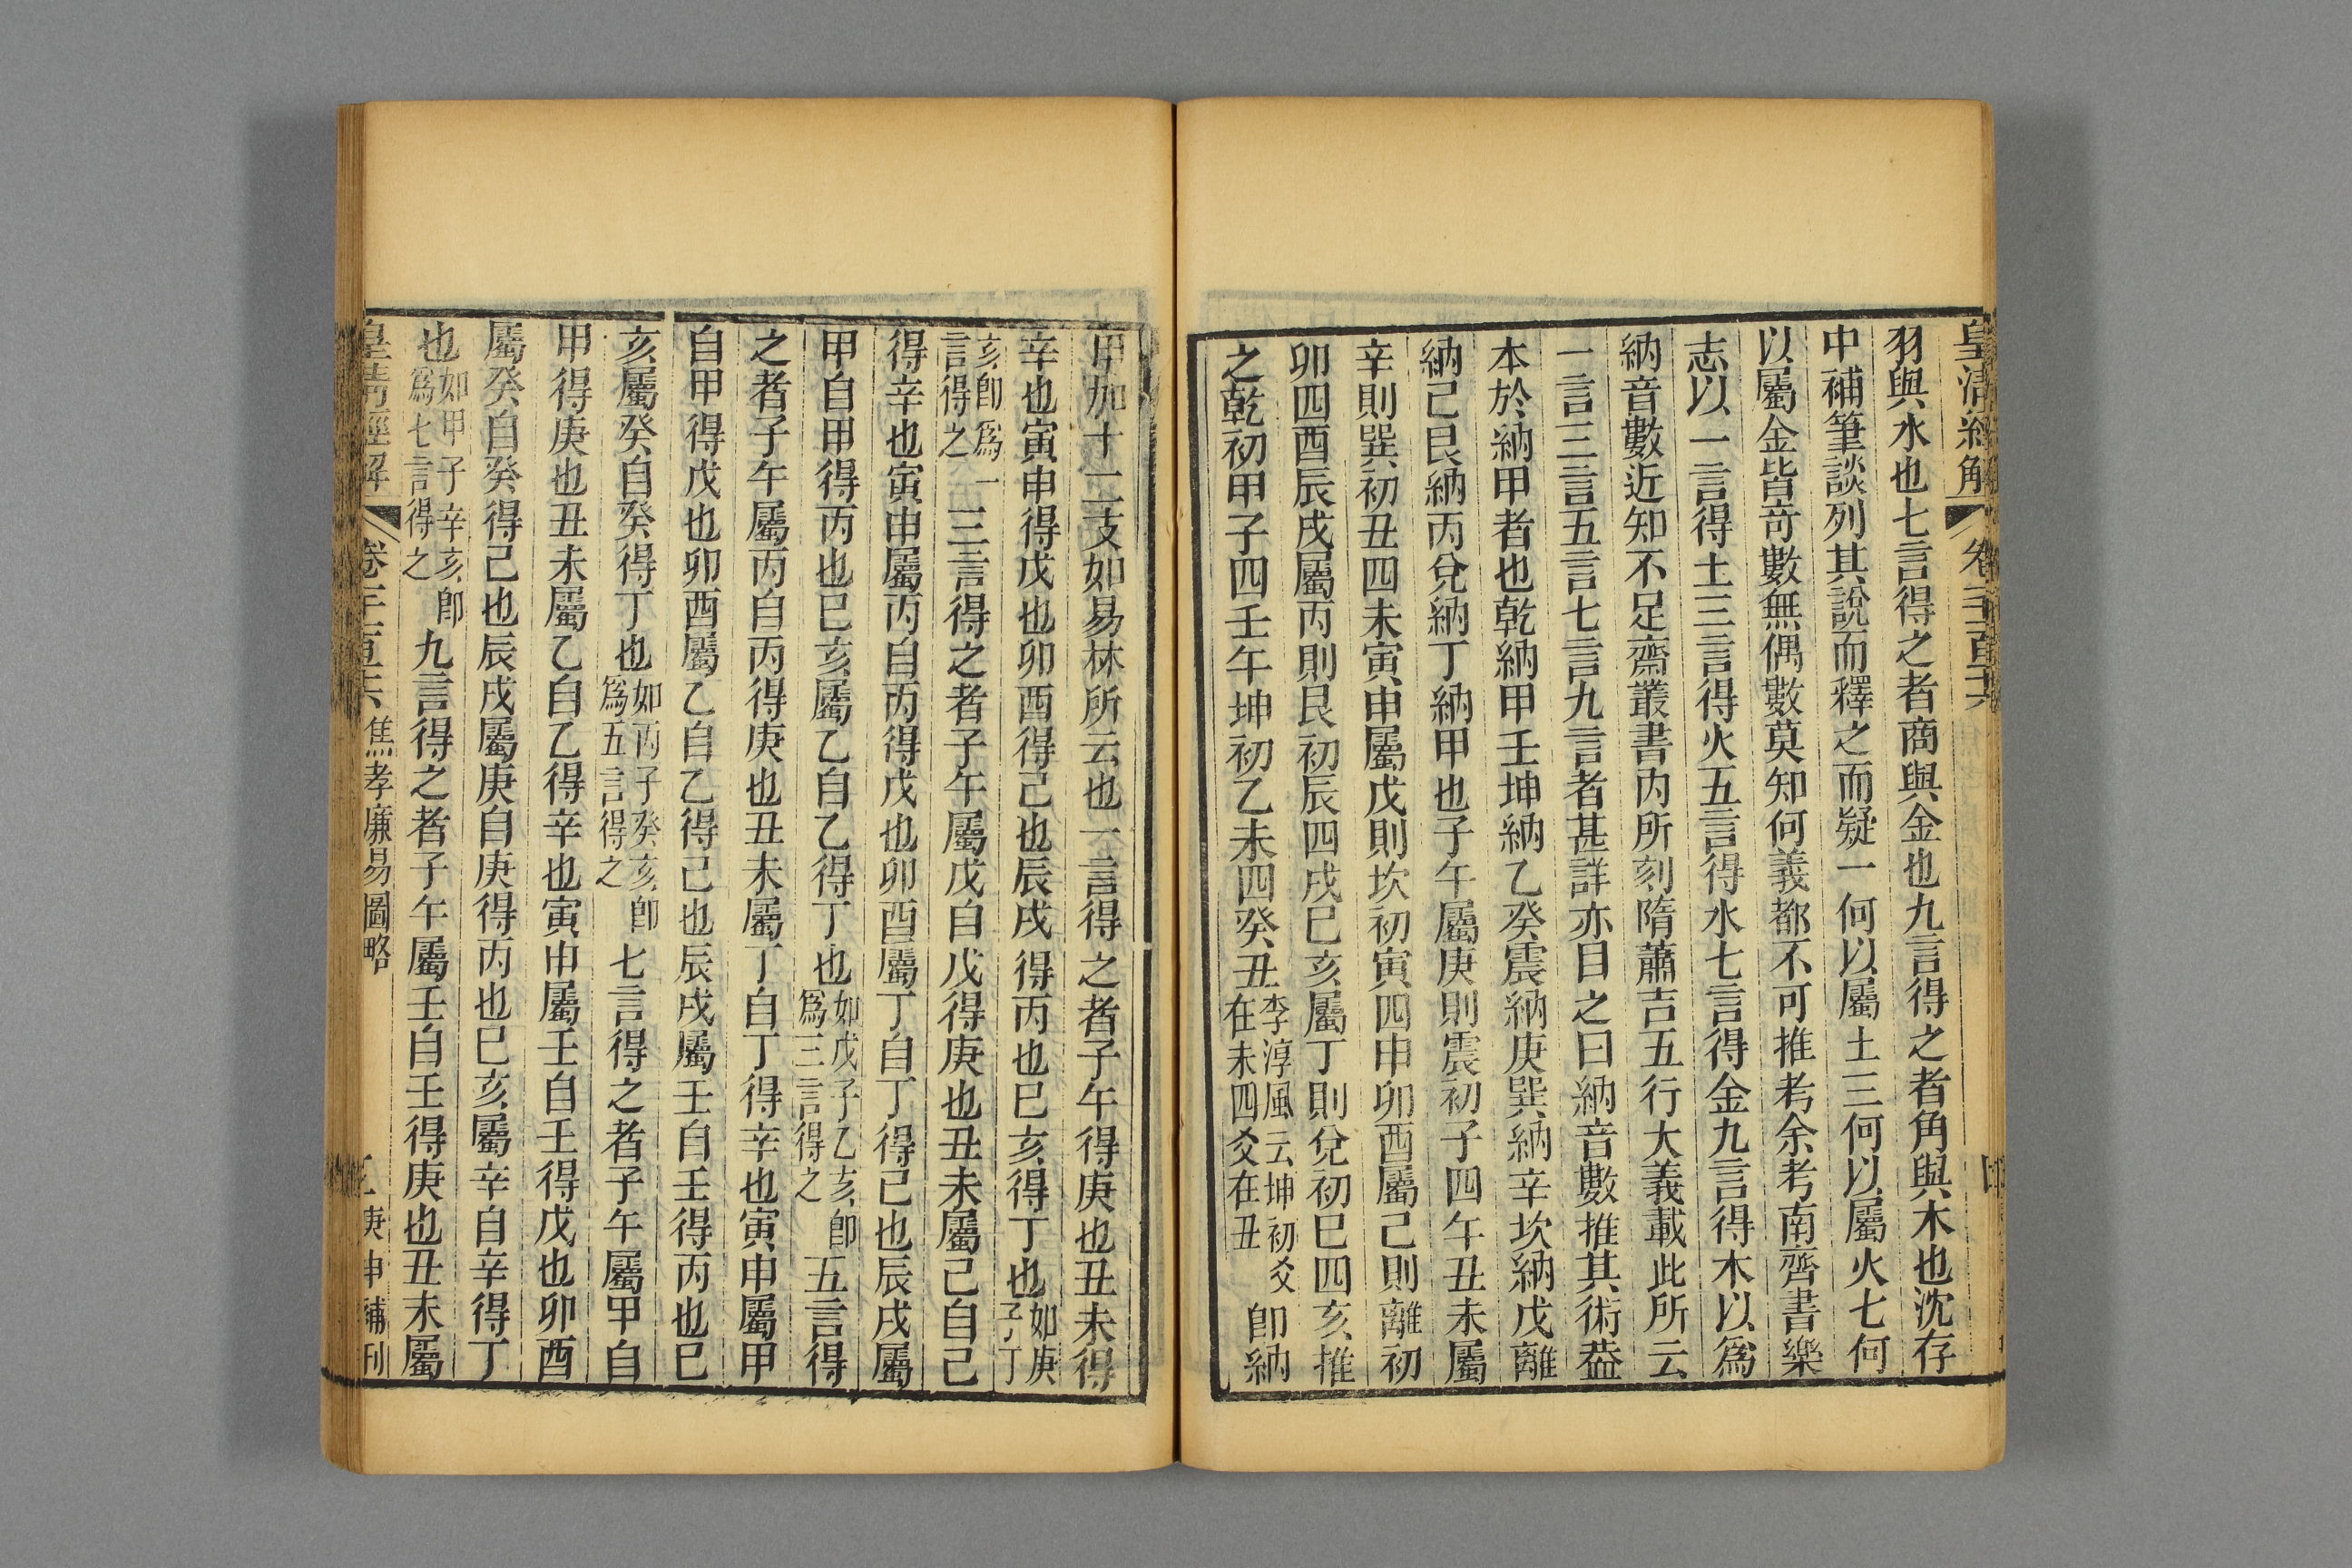 皇清經解
卷一千一百六
羽與水也七言得之者商與金也九言得之者角與木也沈存
中補筆談列其說而釋之而疑一何以屬土三何以屬火七何
以屬金皆奇數無偶數莫知何義都不可推考余考南齊書樂
志以一言得土三言得火五言得水七言得金九言得木以爲
納音數近知不足齋叢書内所刻隋蕭吉五行大義載此所云
一言三言五言七言九言者甚詳亦目之曰納音數推其術葢
本於納甲者也乾納甲壬坤納乙癸震納庚巽納辛坎納戊離
納己艮納丙兌納丁納甲也子午屬庚則震初子四午丑未屬
辛則巽初丑四未寅申屬戊則坎初寅四申卯酉屬己則離初
卯四酉辰戌屬丙則艮初辰四戌巳亥屬丁則兌初巳四亥推
之乾初甲子四壬午坤初乙未四癸丑李淳風云坤初爻在未四爻在丑卽納
甲加十二支如易林所云也一言得之者子午得庚也丑未得
辛也寅申得戊也卯酉得己也辰戌得丙也巳亥得丁也如庚子丁
亥卽爲一言得之三言得之者子午屬戊自戊得庚也丑未屬己自己
得辛也寅申屬丙自丙得戊也卯酉屬丁自丁得己也辰戌屬
甲自甲得丙也巳亥屬乙自乙得丁也如戊子乙亥卽爲三言得之五言得
之者子午屬丙自丙得庚也丑未屬丁自丁得辛也寅申屬甲
自甲得戊也卯酉屬乙自乙得己也辰戌屬壬自壬得丙也巳
亥屬癸自癸得丁也如丙子癸亥卽爲五言得之七言得之者子午屬甲自
甲得庚也丑未屬乙自乙得辛也寅申屬壬自壬得戊也卯酉
屬癸自癸得己也辰戌屬庚自庚得丙也巳亥屬辛自辛得丁
也如甲子辛亥卽爲七言得之九言得之者子午屬壬自壬得庚也丑未屬
皇清經解
焦孝廉易圖略
庚申補刊